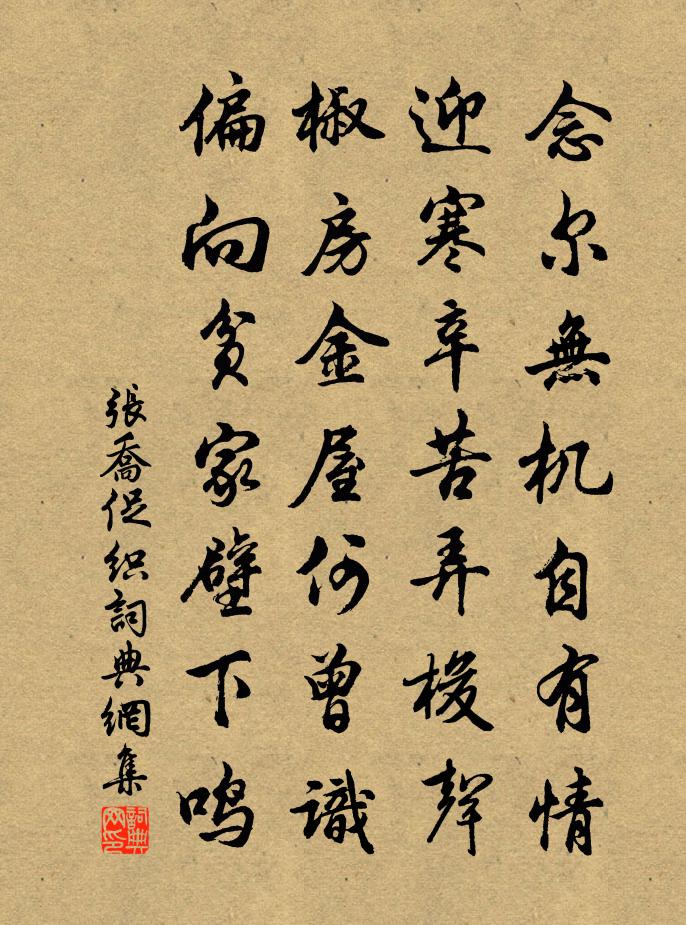 念尔無机自有情
迎寒辛苦弄梭聲
椒房金屋何曾識
偏向貧家壁下鳴
張喬促织詞典網集
詞典
网印